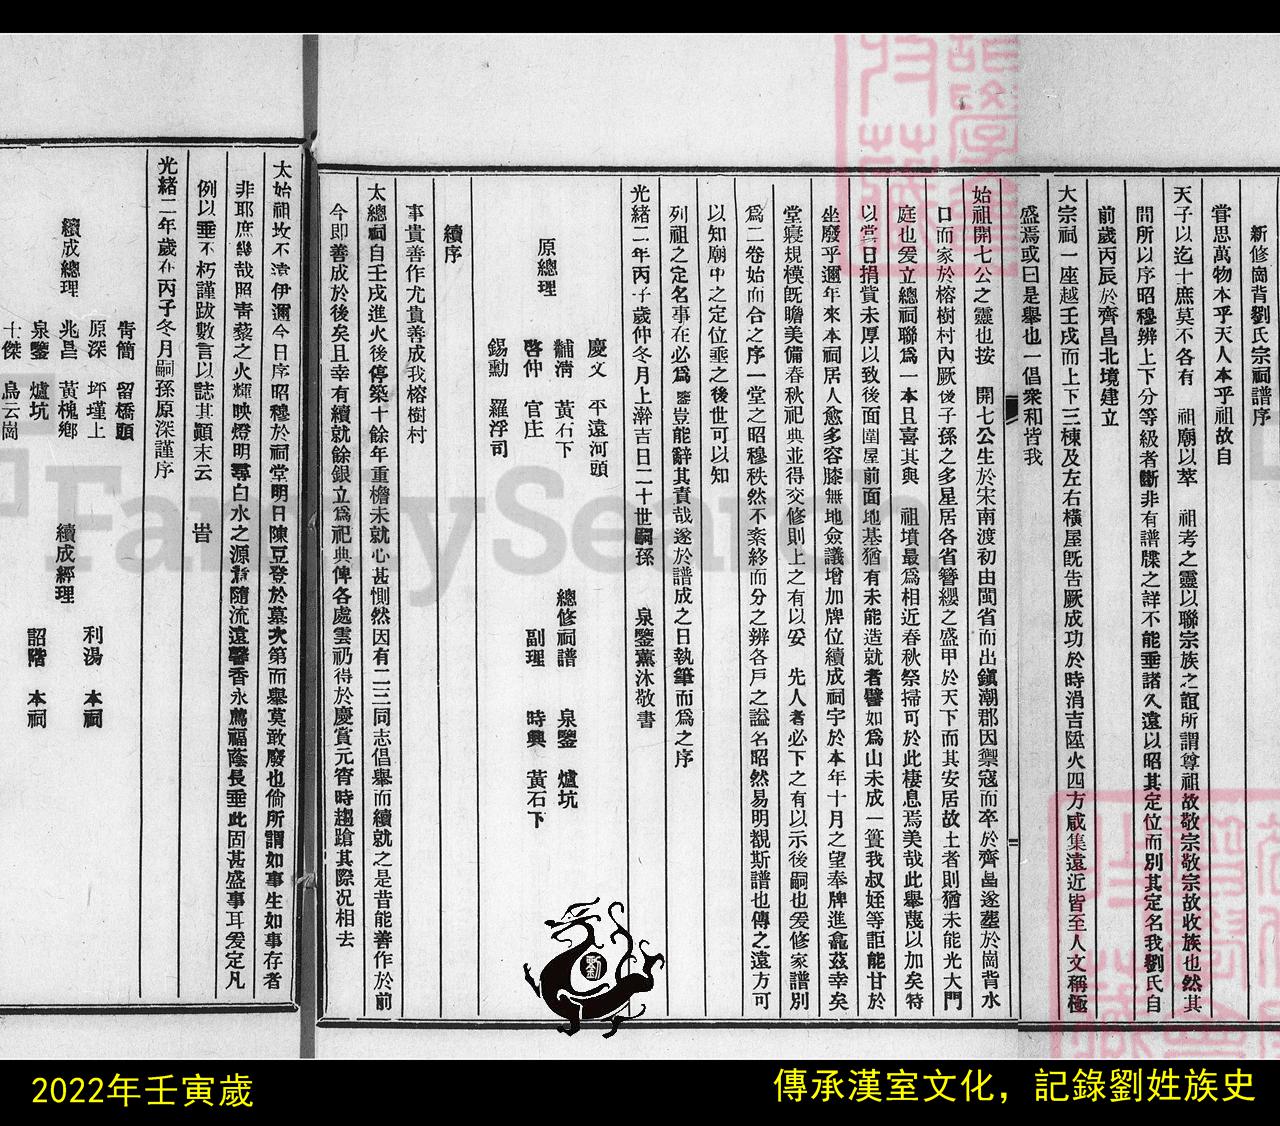 新修崗背劉氏宗祠譜序
嘗思萬物本乎天人本乎祖故自
天子以迄十庶莫不各有 祖廟以萃 祖考之靈以聯宗族之誼所謂尊祖故敬宗敬宗故收族也然其
間所以序昭穆辨上下分等級者斷非有譜牒之詳不能垂諸久遠以昭其定位而別其定名我劉氏自
前歲丙辰於齊昌北境建立
大宗祠一座越壬戌而上下三棟及左右橫屋既告厥成功於時涓吉陞火四方咸集遠近皆至人文稱極
盛焉或曰是舉也一倡衆和皆我
始祖開七公之靈也按 開七公生於宋南渡初由閩省而出鎮潮郡因禦寇而卒於齊昌遂塟於崗背水
口而家於榕樹村內厥後子孫之多星居各省簪纓之盛甲於天下而其安居故土者則猶未能光大門
庭也爰立總祠聯爲一本且喜其與 祖墳最爲相近春秋祭掃可於此棲息焉美哉此舉蔑以加矣特
以嘗日捐貲未厚以致後面圍屋前面地基猶有未能造就者譬如爲山未成一簣我叔姪等詎能甘於
坐廢乎邇年來本祠居人愈多容膝無地僉議增加牌位續成祠宇於本年十月之望奉牌進龕茲幸矣
堂寢規模既瞻美備春秋祀典並得交修則上之有以妥 先人者必下之有以示後嗣也爰修家譜別
爲二卷始而合之序一堂之昭穆秩然不紊終而分之辨各戶之謚名昭然易明覩斯譜也傳之遠方可
以知廟中之定位垂之後世可以知
列祖之定名事在必爲鑒豈能辭其責哉遂於譜成之日執筆而爲之序
光緒二年丙子歲仲冬月上澣吉日二十世嗣孫 泉鑒薰沐敬書
慶文 平遠河頭
原總理 黼淸 黃石下 總修祠譜 泉鑒 爐坑
啓仲 官庄 副理 時興 黃石下
錫勳 羅浮司
續序
事貴善作尤貴善成我榕樹村
太總祠自壬戌進火後停築十餘年重檐未就心甚惻然因有二三同志倡舉而續就之是昔能善作於前
今即善成於後矣且幸有續就餘銀立爲祀典俾各處雲礽得於慶賞元宵時趨蹌其際况相去
太始祖坟不遠伊邇今日序昭穆於祠堂明日陳豆登於墓次第而舉莫敢廢也倘所謂如事生如事存者
非耶庶幾哉照靑藜之火輝映燈明尋白水之源流遠馨香永薦福蔭長垂此固甚盛事耳爰定凡
例以垂不朽謹跋數言以誌其顚末云 旹
光緒二年歲在丙子冬月嗣孫原深謹序
靑簡 留橋頭
原深 坪瑾上 利湯 本祠
續成總理 兆昌 黃槐鄉 續成經理
泉鑒 爐坑 詔階 本祠
十傑 烏云崗
FamilySearch
劉
2022年壬寅歲
傳承漢室文化，記錄劉姓族史